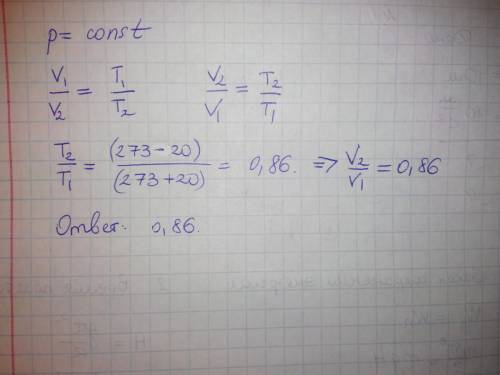 p = const
V₁/V₂ = T₁/T₂ V₂/V₁ = T₂/T₁
T₂/T₁ = (273-20)/(273+20) = 0,86. => V₂/V₁ = 0,86
Ответ: 0,86.